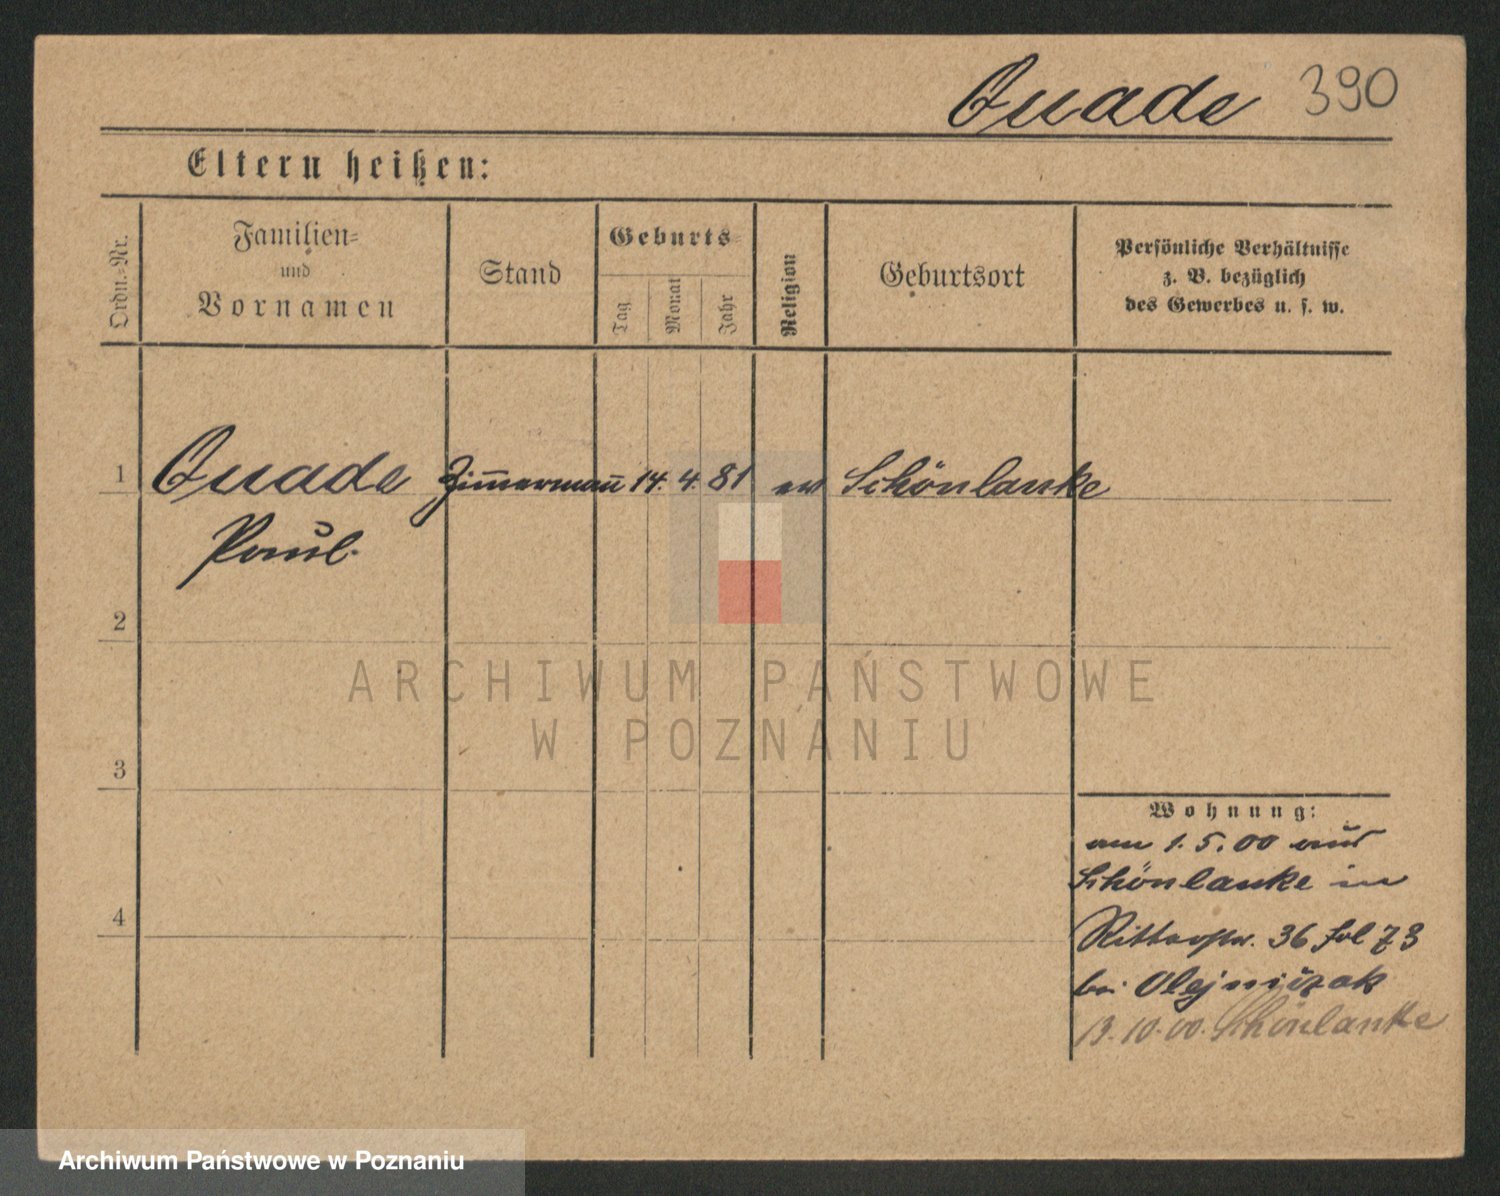 Quade 390
Eltern heißen:
Ordn.-Nr.
Familien-
und
Vornamen
Stand
Geburts-
Tag
Monat
Jahr
Religion
Geburtsort
Persönliche Verhältnisse
z. B. bezüglich
des Gewerbes u. s. w.
1 Quade Zim̅erman̅ 14. 4. 81 ev Schönlanke
Paul.
2
3
4
Wohnung:
am 1. 5. 00 aus
Schönlanke in
Ritterstr. 36 fol 73
bei Olejniczak
13. 10. 00. Schönlanke
ARCHIWUM PAŃSTWOWE
W POZNANIU
Archiwum Państwowe w Poznaniu